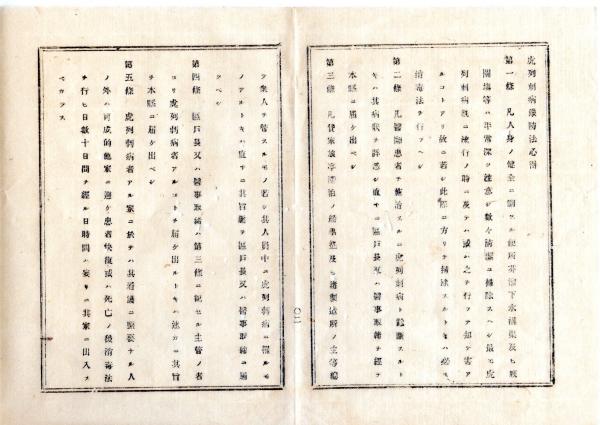 虎列剌病豫防法心得
第一條 凡人身ノ健全ニ關スル便所芥溜下水溝渠及ヒ厩
圊塲等ハ平常深ク注意シ數々清潔ニ掃除スヘシ最モ虎
列剌病既ニ流行ノ時ニ及テハ或ハ之チ行フテ却テ害ア
ルコトアリ故ニ若シ此際ニ方リテ掃除スルトキハ必ス
消毒法チ行フヘシ
第二條 凡醫師患者チ施治スルニ虎列剌病ト診斷スルト
キハ其病狀チ詳悉シ直チニ區戸長又ハ醫事取締チ經テ
本縣ニ届ケ出ベシ
第三條 凡貸家旅亭碇泊ノ船舶塾及ヒ諸製造所ノ主等總
テ衆人チ管スルモノ若シ其人員中ニ虎列剌病ニ罹ルモ
ノアルトキハ直チニ其旨趣チ區戸長又ハ醫事取締ニ届
クベシ
第四條 區戸長又ハ醫事取締ハ第三條ニ記セル主管ノ者
ヨリ虎列剌病者アルコトチ届ケ出ルトキハ速カニ其旨
チ本縣ニ届ケ出ベシ
第五條 虎列剌病者アル家ニ於テハ其看護ニ緊要ナル人
ノ外ハ可成的他家ニ避ケ患者快復或ハ死亡ノ後消毒法
チ行ヒ日數十日間チ經ル日時間ハ妄リニ其家ニ出入ス
ベカラス
〇二